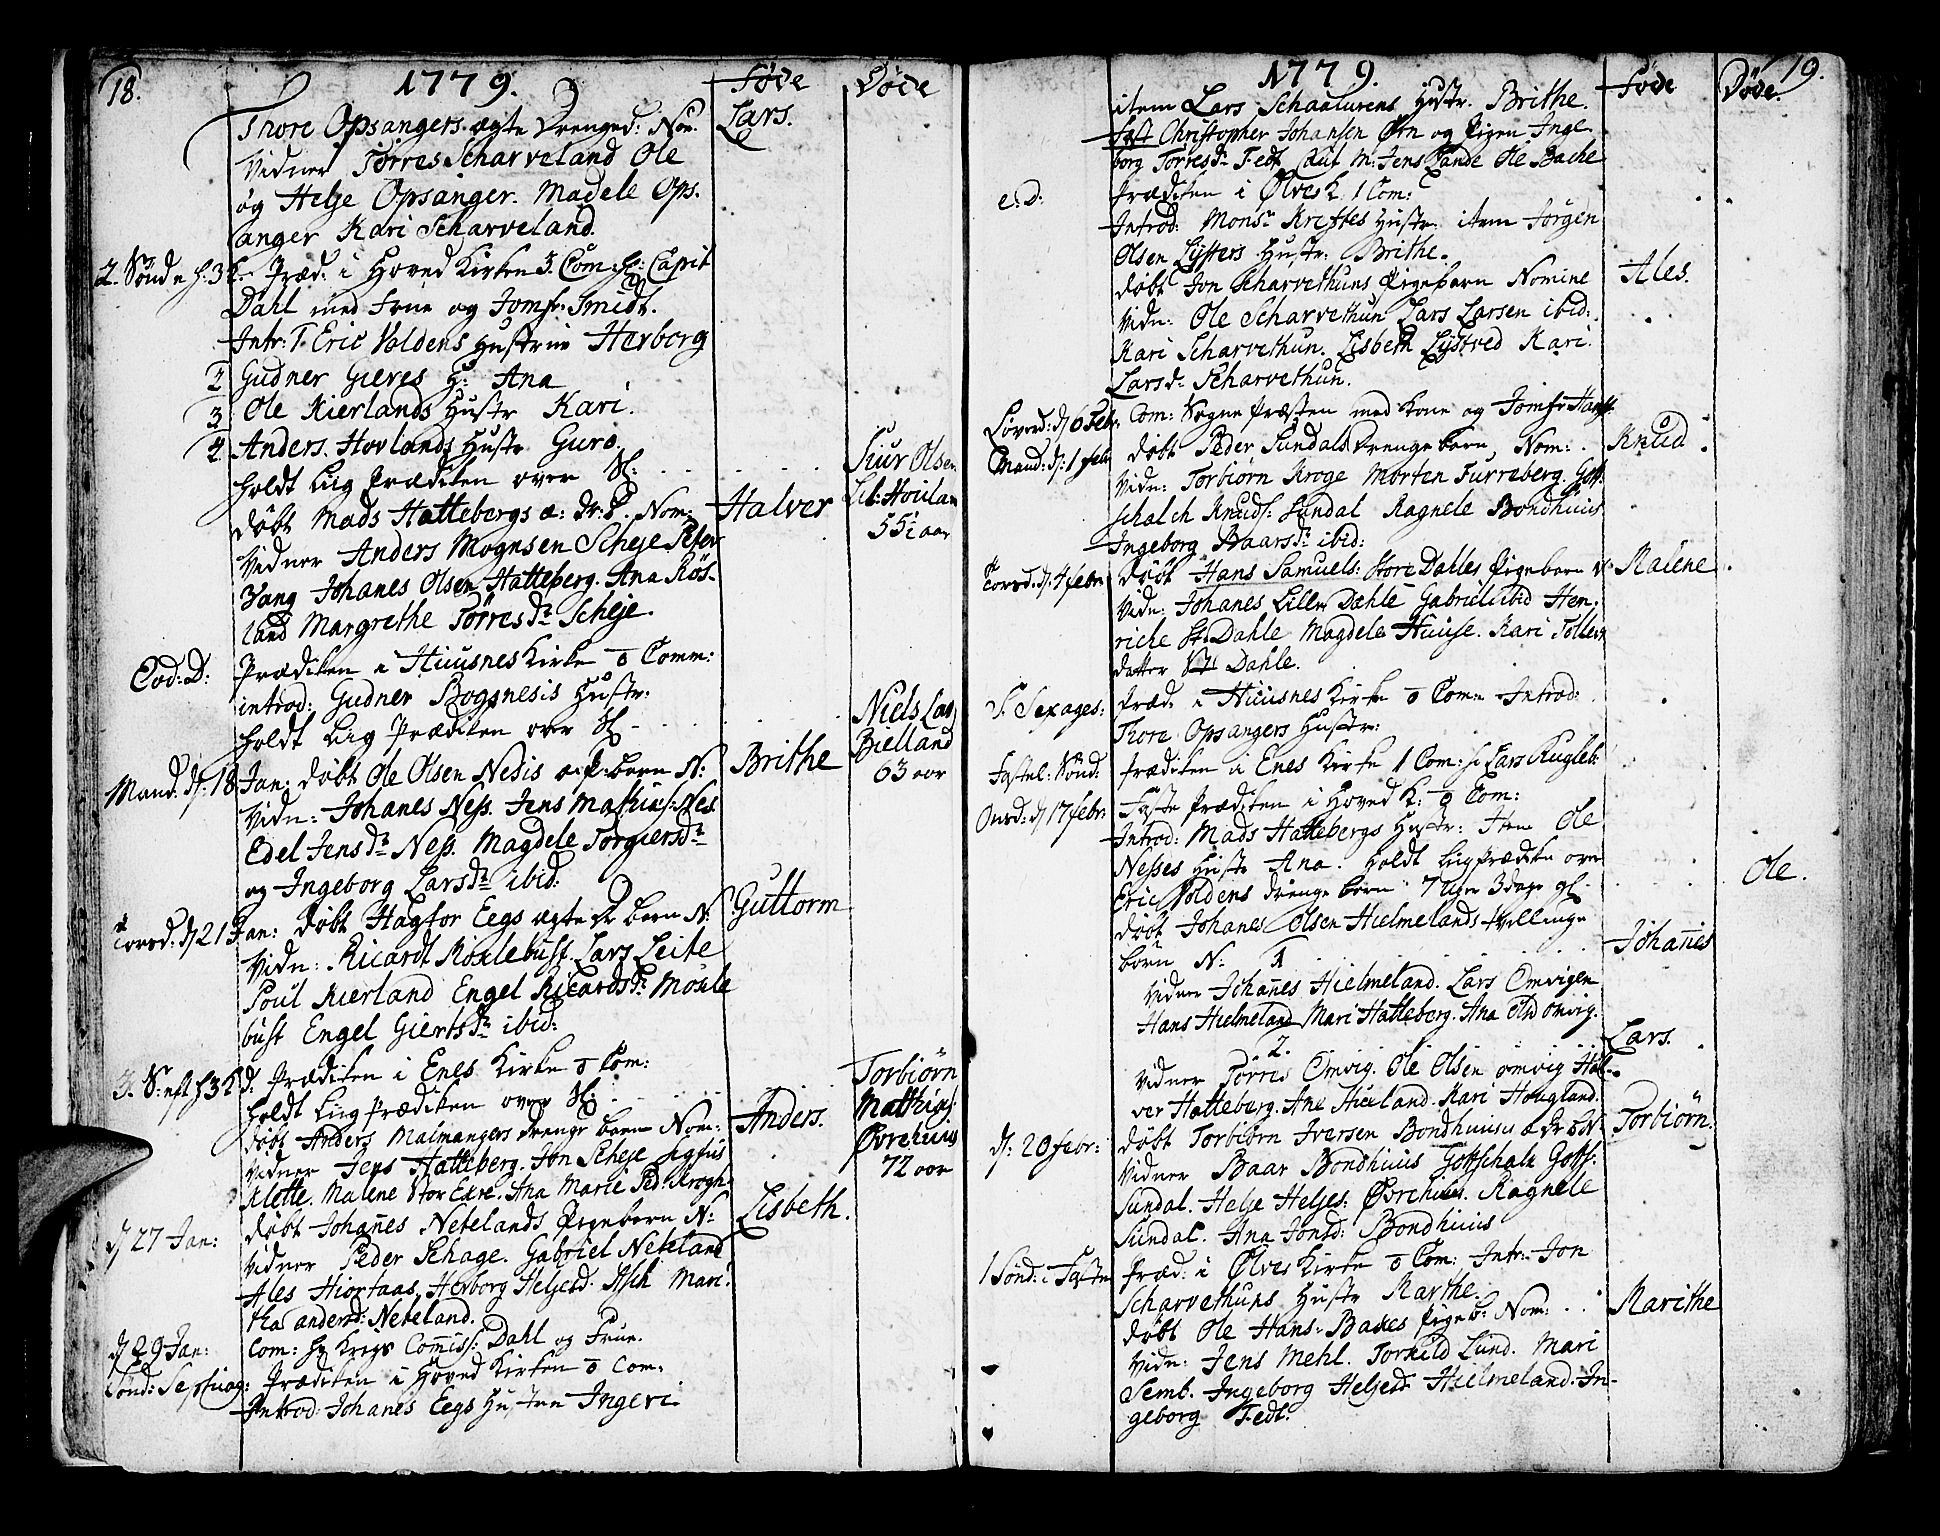 18.
1779.
Føde
Døde
Thore Opsangers ægte Drenged: Nom:
Lars.
Vidner Torres Scharveland Ole
og Helje Opsanger. Madele Ops.
anger Kari Scharveland.
2. Sønd e. h. 3 K. Præd: i Hoved Kirken 3. Com: Hr: Capit
Dahl med Frue og Jomfr. Smidt.
Intr: 1. Eric Voldens Hustrue Herborg
2 Gudner Gieres H: Ana
3. Ole Kierlands Hustr Kari.
4. Anders Hovlands Hustr Guro.
holdt Liig Prædiken over Sl:
Siur Olsen
Lil: Houlan
55½ aar
døbt Mads Hattebergs æ: Dr: B. Nom:
Halver
Vidner Anders Mognsen Scheje Peter
Vang Johanes Olsen Hatteberg. Ana Røs-
land Margrethe Torresdr Scheje.
Eod: D:
Prædiken i Huusnes Kirke 0 Comm:
introd: Gudner Bogsnesis Hustr:
holdt Liig Prædiken over Sl
Niels Lars
Bielland
63 aar
Mand: d. 18 Jan: døbt Ole Olsen Nedis æ. P. barn N:
Brithe
Vidn: Johanes Ness. Jens Mathias: Nes
Edel Jensdr Ness. Magdele Torgiersdr
og Ingeborg Larsdr ibid:
Torsd: d. 21 Jan: døbt Hagtor Eegs ægte Dr barn N:
Guttorm
Vidn: Ricardt Lars Leite
Poul Kierland Engel Ricardsdr
bust Engel Giertsdr ibid:
3. S: eft h 3 K d. Prædiken i Enes Kirke 0 Com:
holdt Liig Prædiken over Sl:
Torbiørn
Mathias
Øvrehuus
72 aar
døbt Anders Malmangers drenge barn Nom:
Anders.
Vidner Jens Hatteberg. Jon Scheje Sigfus
Klette. Malene Stor Exre. Ana Marie Ped: Krogh
d. 27 Jan:
døbt Johanes Netelands Pigebarn N:
Lisbeth.
Vidner Peder Schage. Gabriel Neteland
Ales Hiortaas, Herborg Heljesd. Mari-
tha andersd: Neteland.
d. 29 Jan:
Com: Hr Krigs Comiss: Dahl og Frue.
Sønd: Septuag: Prædiken i Hoved Kirken 0 Com:
Introd: Johanes Eegs Hustrue Ingeri.
1779.
Føde
Døde.
19.
item Lars Schaalurens Hustr. Brithe.
Fæst Christopher Johansen Ørn og Pigen Inge
borg Torresdr Tedt Caut M. Jens Tande Ole Bache
e. D:
Prædiken i Ølves K. 1 Com:
Introd: Monsr Kriftes Hustr: item Jørgen
Olsen Lysters Hustr: Brithe.
døbt Jon Scharvethuns Pigebarn Nomine
Ales.
Vidn: Ole Scharvethun Lars Larsen ibid:
Kari Scharvethun. Lisbeth Lystved Kari
Larsdr Scharvethun.
Løverd: d. 6 Febr: Com: Sogne Præsten med Kone og Jomfr
Mand: d. 1 febr døbt Peder Sundals Drenge barn Nom:
Knud
Vidn: Torbiørn Kroge Morten Furreberg. Gott
schalch Knuds: Sundal Ragnele Bondhuus
Ingeborg Baarsdr ibid:
Torsd: d. 4 febr
døbt Hans Samuels: Store Dahles Pigebarn N.
Malene
Vidn: Johanes Lille Dahle Gabriel ibid Hen-
riche St. Dahle Magdele Huuse. Kari Tollevs
datter Dahle.
S. Sexages:
Præd. i Huusnes Kirke 0 Com: Introd:
Thore Opsangers Hustr:
Fastel: Sønd:
Prædiken i Enes Kirke 1 Com:
Onsd: d 17 febr:
Faste Prædiken i Hoved K: 0 Com:
Introd: Mads Hattebergs Hustr: Item Ole
Nesses Hustr Ana. holdt Liigprædiken over
Eric Voldens drenge barn 7 uger 3 dage gl.
Ole.
døbt Johanes Olsen Hielmelands tvillinge
børn N: 1
Johanes
Vidner Johanes Hielmeland. Lars Omvigen
Hans Hielmeland Mari Hatteberg. Ana Olsd Omvig.
2.
Lars.
Vidner Torres Omvig. Ole Olsen omvig Hal-
ver Hatteberg. Ane Hougland.
d: 20 febr:
døbt Torbiørn Iversen Bondhuus æ Dr B N.
Torbiørn.
Vidner Baar Bondhuus Gottschalk Gotts:
Sundal. Helje Heljes: Øvrehuus. Ragnele
Sundal. Ana Jonsd: Bondhuus
1 Sønd: i Faste
Præd: i Ølves Kirke 0 Com: Intr: Jon
Scharvethuns Hustr Marthe.
døbt Ole Hans: Bakes Pigeb: Nom:
Marithe
Vidn: Jens Mehl. Torkild Lund. Mari
Semb. Ingeborg Heljesd Hielmeland. In-
geborg Tedt.